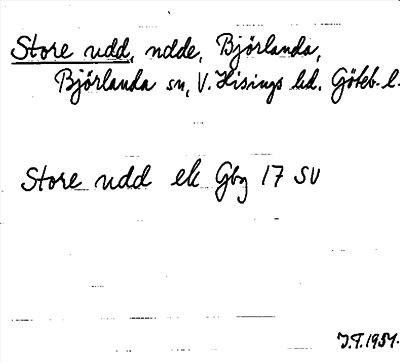 Store udd, udde, Björlanda,
Björlanda sn, V. Hisings hd. Göteb. l.
Store udd ek Gbg 17 SV
J.T. 1951.